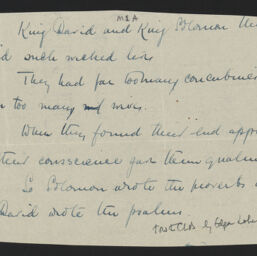 M&A
King David and King Solomon
wicked lives
They had far too many concubines
too many
When they found their end
conscience gave them qualms
So Solomon wrote the proverbs
David wrote the psalms.